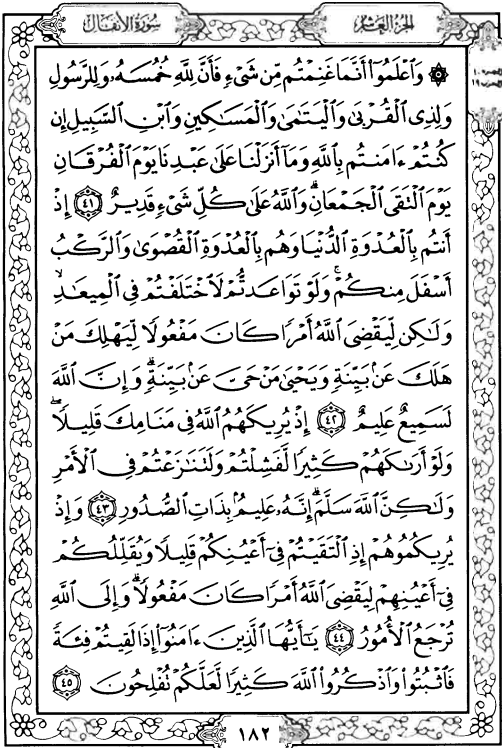 سُورَةُ الأَنفَالِ
الجُزْءُ العَاشِرُ
۞ وَٱعۡلَمُوٓاْ أَنَّمَا غَنِمۡتُم مِّن شَيۡءٖ فَأَنَّ لِلَّهِ خُمُسَهُۥ وَلِلرَّسُولِ
وَلِذِي ٱلۡقُرۡبَىٰ وَٱلۡيَتَٰمَىٰ وَٱلۡمَسَٰكِينِ وَٱبۡنِ ٱلسَّبِيلِ إِن
كُنتُمۡ ءَامَنتُم بِٱللَّهِ وَمَآ أَنزَلۡنَا عَلَىٰ عَبۡدِنَا يَوۡمَ ٱلۡفُرۡقَانِ
يَوۡمَ ٱلۡتَقَى ٱلۡجَمۡعَانِۗ وَٱللَّهُ عَلَىٰ كُلِّ شَيۡءٖ قَدِيرٌ ٤١ إِذۡ
أَنتُم بِٱلۡعُدۡوَةِ ٱلدُّنۡيَا وَهُم بِٱلۡعُدۡوَةِ ٱلۡقُصۡوَىٰ وَٱلرَّكۡبُ
أَسۡفَلَ مِنكُمۡۚ وَلَوۡ تَوَاعَدتُّمۡ لَٱخۡتَلَفۡتُمۡ فِي ٱلۡمِيعَٰدِ
وَلَٰكِن لِّيَقۡضِيَ ٱللَّهُ أَمۡرٗا كَانَ مَفۡعُولٗا لِّيَهۡلِكَ مَنۡ
هَلَكَ عَنۢ بَيِّنَةٖ وَيَحۡيَىٰ مَنۡ حَيَّ عَنۢ بَيِّنَةٖۗ وَإِنَّ ٱللَّهَ
لَسَمِيعٌ عَلِيمٌ ٤٢ إِذۡ يُرِيكَهُمُ ٱللَّهُ فِي مَنَامِكَ قَلِيلٗاۖ
وَلَوۡ أَرَىٰكَهُمۡ كَثِيرٗا لَّفَشِلۡتُمۡ وَلَتَنَٰزَعۡتُمۡ فِي ٱلۡأَمۡرِ
وَلَٰكِنَّ ٱللَّهَ سَلَّمَۗ إِنَّهُۥ عَلِيمُۢ بِذَاتِ ٱلصُّدُورِ ٤٣ وَإِذۡ
يُرِيكُمُوهُمۡ إِذِ ٱلۡتَقَيۡتُمۡ فِيٓ أَعۡيُنِكُمۡ قَلِيلٗا وَيُقَلِّلُكُمۡ
فِيٓ أَعۡيُنِهِمۡ لِيَقۡضِيَ ٱللَّهُ أَمۡرٗا كَانَ مَفۡعُولٗاۗ وَإِلَى ٱللَّهِ
تُرۡجَعُ ٱلۡأُمُورُ ٤٤ يَٰٓأَيُّهَا ٱلَّذِينَ ءَامَنُوٓاْ إِذَا لَقِيتُمۡ فِئَةٗ
فَٱثۡبُتُواْ وَٱذۡكُرُواْ ٱللَّهَ كَثِيرٗا لَّعَلَّكُمۡ تُفۡلِحُونَ ٤٥
١٨٢